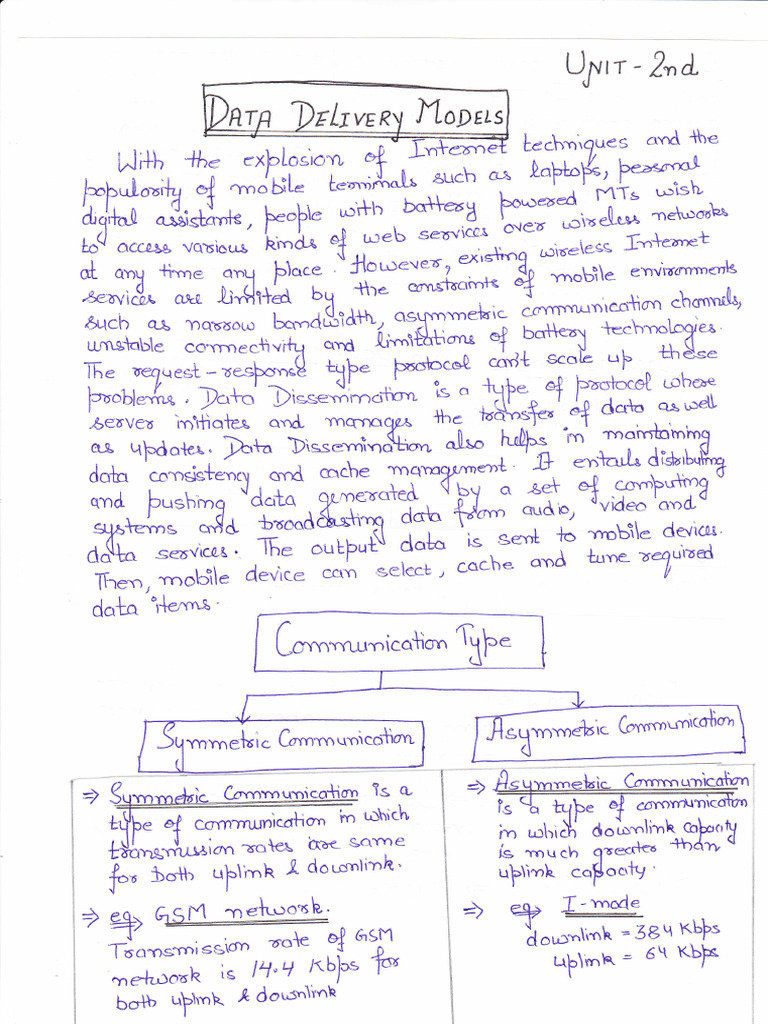 UNIT - 2nd
DATA DELIVERY MODELS
With the explosion of Internet techniques and the
popularity of mobile terminals such as laptops, personal
digital assistants, people with battery powered MTs wish
to access various kinds of web services over wireless networks
at any time any place. However, existing wireless Internet
services are limited by the constraints of mobile environments
such as narrow bandwidth, asymmetric communication channels,
unstable connectivity and limitations of battery technologies.
The request-response type protocol can't scale up these
problems. Data Dissemination is a type of protocol where
server initiates and manages the transfer of data as well
as updates. Data Dissemination also helps in maintaining
data consistency and cache management. It entails distributing
and pushing data generated by a set of computing
systems and broadcasting data from audio, video and
data services. The output data is sent to mobile devices.
Then, mobile device can select, cache and tune required
data items.
Communication Type
Symmetric Communication
Asymmetric Communication
⇒ Symmetric Communication is a
type of communication in which
transmission rates are same
for both uplink & downlink.
⇒ eg GSM network.
Transmission rate of GSM
network is 14.4 Kbps for
both uplink & downlink
⇒ Asymmetric Communication
is a type of communication
in which downlink capacity
is much greater than
uplink capacity.
⇒ eg I-mode
downlink = 384 Kbps
uplink = 64 Kbps